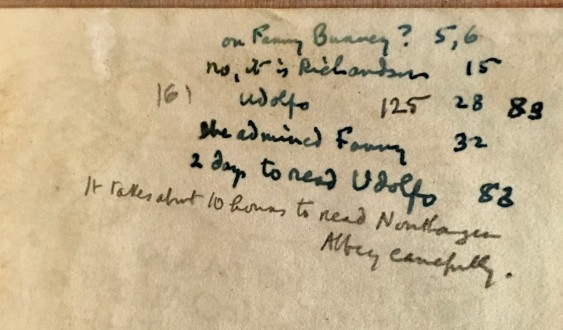 on Fanny Burney? 5, 6
no, it is Richardson 15
161 Udolfo 125 28 89
She admired Fanny 32
2 days to read Udolfo 82
It takes about 10 hours to read Northanger
Abbey carefully.